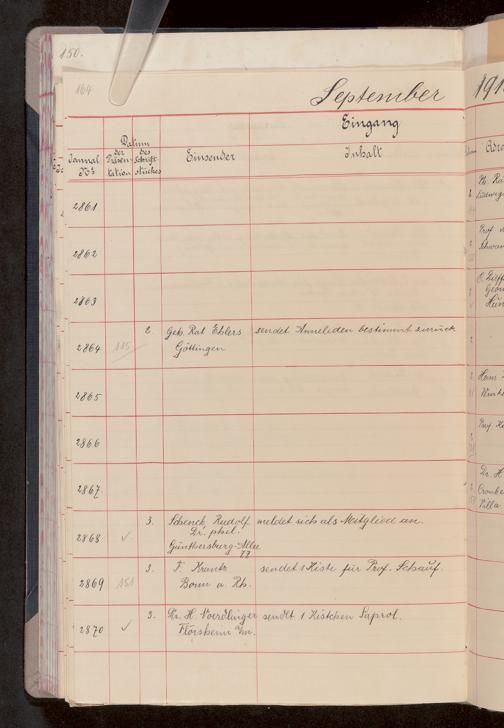 150.
164
September
191
Eingang
Datum
Journal
No.
der
Präsen-
tation
des
Schrift
stückes
Einsender
Inhalt
2861
2862
2863
2864
115
2
Geh. Rat Ehlers
Göttingen
sendet Anneliden bestimmt zurück
2865
2866
2867
2868
✓
3.
Schenck, Rudolf
Dr. phil.
Günthersburg-Allee
77
meldet sich als Mitglied an.
2869
3.
F. Krantz
Bonn a. Rh.
sendet 1 Kiste für Prof. Schauf.
2870
✓
3.
Dr. H. Noerdlinger
Flörsheim a/m.
sendet 1 Kistchen Saprol.
Prof.
Dr. H.
Villa